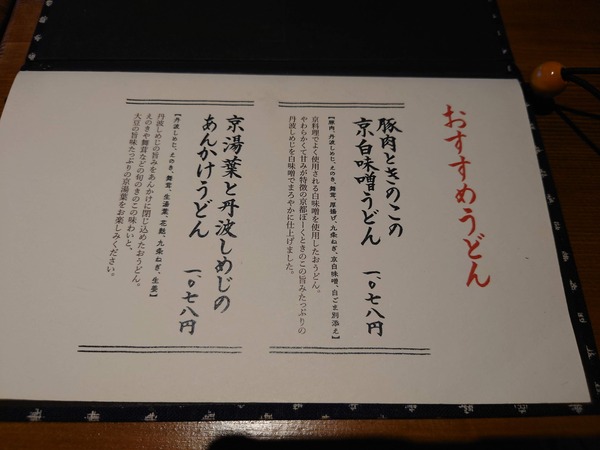 おすすめうどん
豚肉ときのこの
京白味噌うどん 一、〇七八円
【豚肉、丹波しめじ、えのき、舞茸、厚揚げ、九条ねぎ、京白味噌、白ごま別添え】
京料理でよく使用される白味噌を使用したおうどん。
やわらかくて甘みが特徴の京都ぽーくときのこの旨みたっぷりの
丹波しめじを白味噌でまろやかに仕上げました。
京湯葉と丹波しめじの
あんかけうどん 一、〇七八円
【丹波しめじ、えのき、舞茸、生湯葉、花麩、九条ねぎ、生姜】
丹波しめじの旨みをあんかけに閉じ込めたおうどん。
えのきや舞茸などの旬のきのこの味わいと、
大豆の旨味たっぷりの京湯葉をお楽しみください。